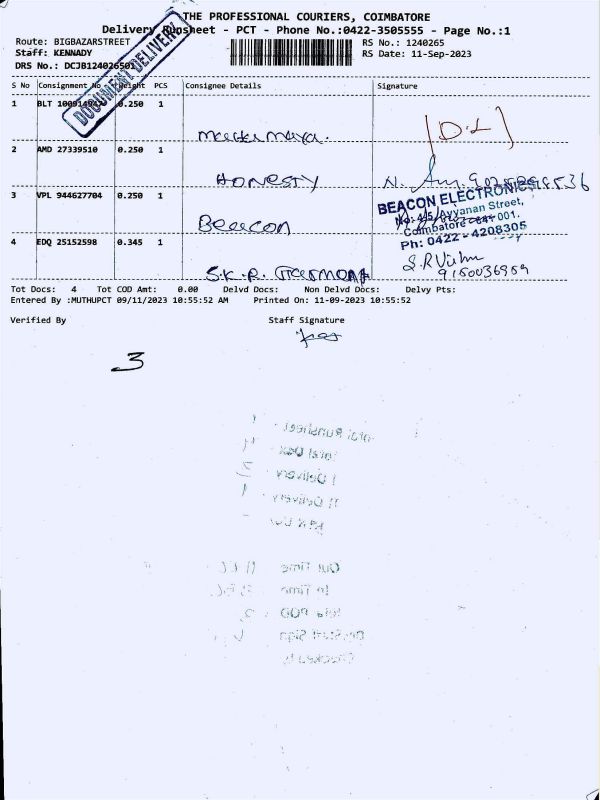 THE PROFESSIONAL COURIERS, COIMBATORE
Delivery Runsheet - PCT - Phone No.:0422-3505555 - Page No.:1
Route: BIGBAZARSTREET
RS No.: 1240265
Staff: KENNADY
RS Date: 11-Sep-2023
DRS No.: DCJB124026501
DOCUMENT DELIVERY
S No Consignment No Weight PCS Consignee Details Signature
1 BLT 0.250 1
[D.L]
2 AMD 27339510 0.250 1
HONESTY
3 VPL 944627704 0.250 1
Beacon
BEACON ELECTRONICS
No: 4/5, Ayyanan Street,
Coimbatore - 641 001.
Ph: 0422 - 4208305
4 EDQ 25152598 0.345 1
S.K.R. Garments
9150036959
Tot Docs: 4 Tot COD Amt: 0.00 Delvd Docs: Non Delvd Docs: Delvy Pts:
Entered By :MUTHUPCT 09/11/2023 10:55:52 AM Printed On: 11-09-2023 10:55:52
Verified By Staff Signature
3